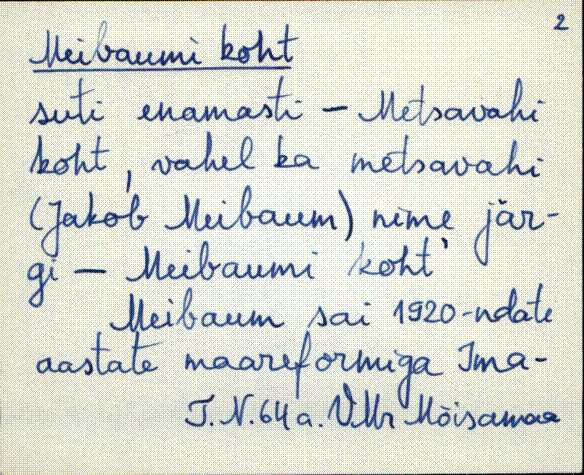 2
Meibaumi koht
suti enamasti – Metsavahi
koht, vahel ka metsavahi
(Jakob Meibaum) nime jär-
gi – Meibaumi koht'
Meibaum sai 1920-ndate
aastate maareformiga Ima-
J. N. 64 a. VMr Mõisamaa